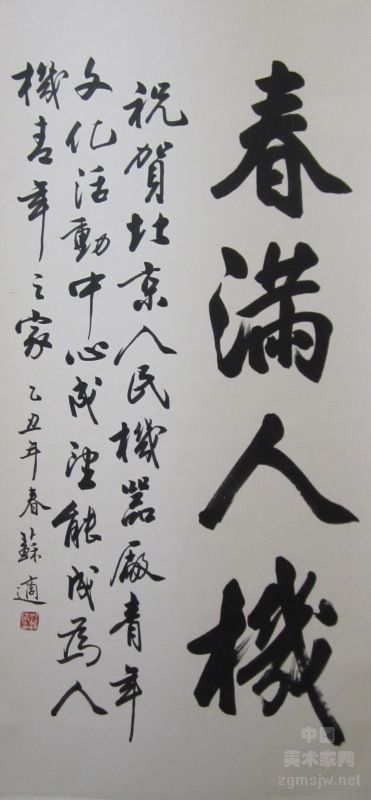 春滿人機
祝賀北京人民機器廠青年
文化活動中心成立望能成為人
機青年之家
乙丑年春
蘇適
中国
美术家网
zgmsjw.net